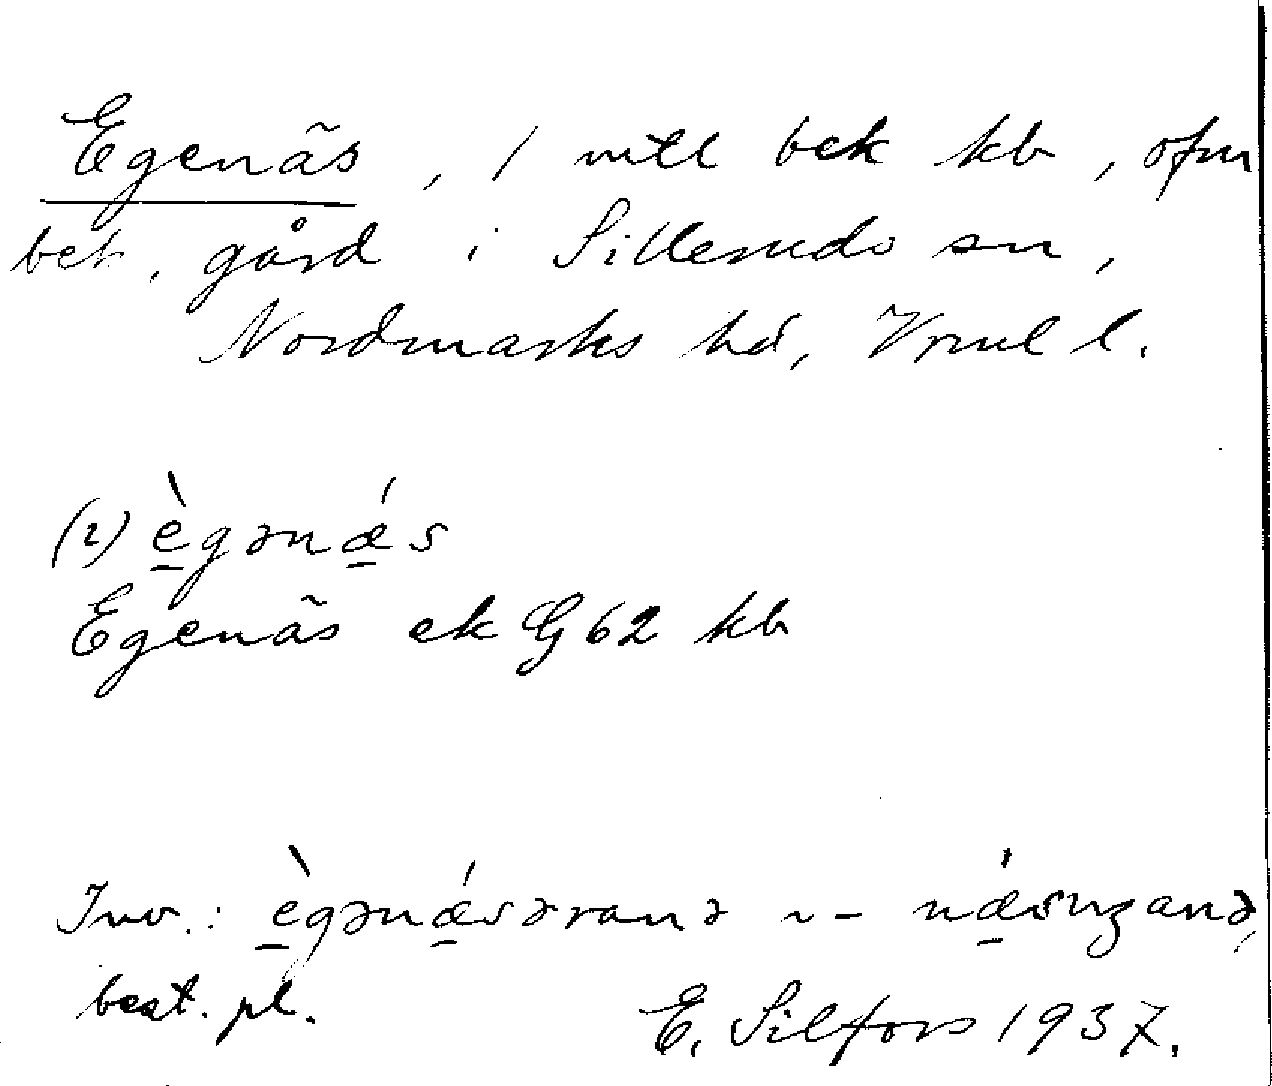 Egenäs, 1 mtl bek kb, ofm
bet. gård i Silleruds sn,
Nordmarks hd, Vrml l.
(2) è̱gənǽ̱s
Egenäs ek G 62 kb
Inv.: è̱gənǽ̱sərana ~ – nǽ̱sıŋgana,
best. pl.
E. Silfors 1937.